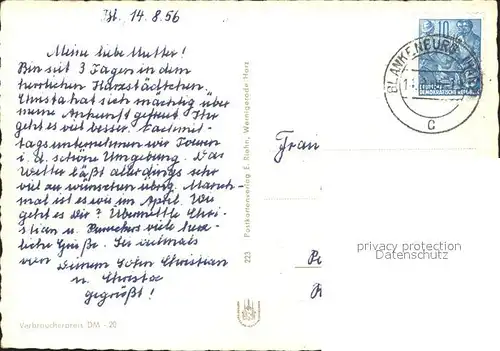 Bl. 14.8.56
Meine liebe Mutter!
Bin seit 3 Tagen in dem
herrlichen Harzstädtchen.
Christa hat sich mächtig über
meine Ankunft gefreut. Ihr
geht es viel besser. Nachmit-
tags unternehmen wir Touren
i. d. schöne Umgebung. Das
Wetter läßt allerdings sehr
viel zu wünschen übrig. Manch-
mal ist es wie im April. Wie
geht es Dir? Übermittle Chri-
stian u. viele herz-
liche Grüße. Sei vielmals
von Deinem Sohn Christian
u. Christa
gegrüßt!
Verbraucherpreis DM -.20
223 Postkartenverlag E. Riehn, Wernigerode Harz
10
DEUTSCHE
DEMOKRATISCHE
BLANKENBURG (HARZ)
c
Frau
privacy protection
Datenschutz